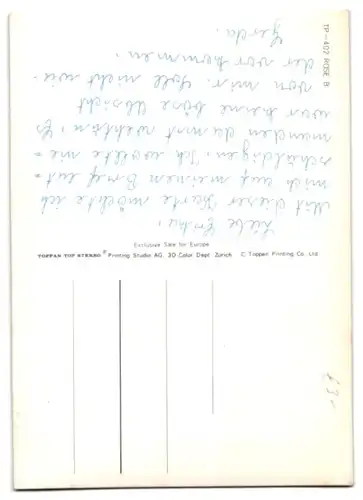 Liebe Erika,
Mit dieser Karte möchte ich
mich auf meinen Brief ent=
schuldigen. Ich wollte nie=
manden damit
war keine böse Absicht
von mir. Soll nicht wie=
der vorkommen.
Gerda.
TP-402 ROSE B
Exclusive Sale for Europe
TOPPAN TOP STEREO ® Printing Studio AG. 3D Color Dept Zürich © Toppan Printing Co. Ltd